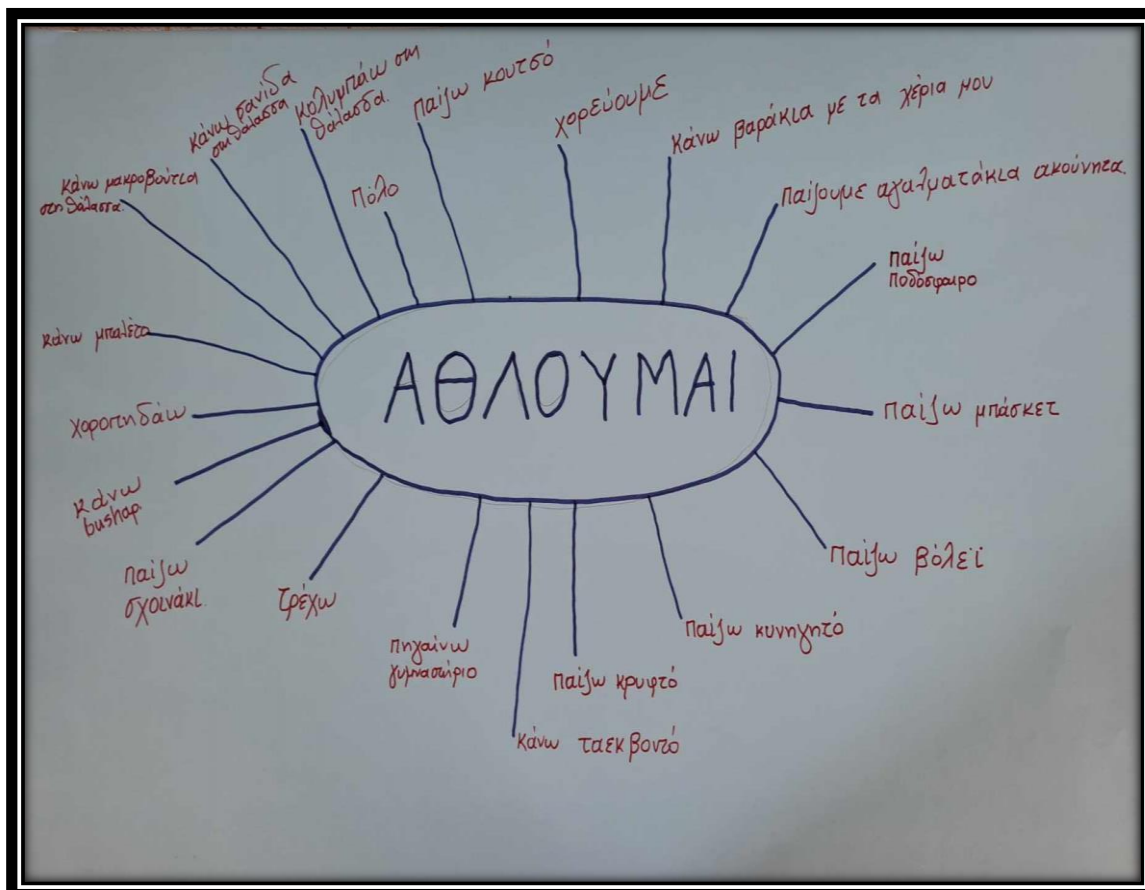 ΑΘΛΟΥΜΑΙ
κάνω μακροβούτια
στη θάλασσα.
κάνω σανίδα
στη θάλασσα
κολυμπάω στη
θάλασσα.
Πόλο
παίζω κουτσό
χορεύουμε
κάνω βαράκια με τα χέρια μου
παίζουμε αγαλματάκια ακούνητα.
παίζω
ποδόσφαιρο
παίζω μπάσκετ
παίζω βόλεϊ
παίζω κυνηγητό
παίζω κρυφτό
κάνω ταεκβοντό
πηγαίνω
γυμναστήριο
τρέχω
παίζω
σχοινάκι.
κάνω
χοροπηδάω
κάνω μπαλέτο